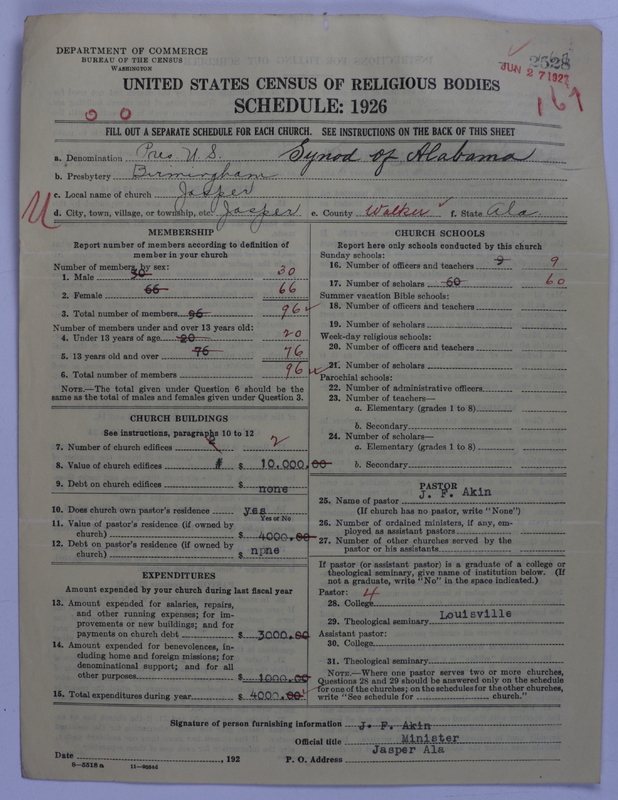 DEPARTMENT OF COMMERCE
BUREAU OF THE CENSUS
WASHINGTON
2528
JUN 27 1927
167
UNITED STATES CENSUS OF RELIGIOUS BODIES
SCHEDULE: 1926
FILL OUT A SEPARATE SCHEDULE FOR EACH CHURCH. SEE INSTRUCTIONS ON THE BACK OF THIS SHEET
a. Denomination Pres U.S. Synod of Alabama
b. Presbytery Birmingham
c. Local name of church Jasper
d. City, town, village, or township, etc. Jasper e. County Walker f. State Ala
MEMBERSHIP
Report number of members according to definition of
member in your church
Number of members by sex:
1. Male 30 30
2. Female 66 66
3. Total number of members 96 96
Number of members under and over 13 years old:
4. Under 13 years of age 20 20
5. 13 years old and over 76 76
6. Total number of members 96
NOTE.—The total given under Question 6 should be the
same as the total of males and females given under Question 3.
CHURCH BUILDINGS
See instructions, paragraphs 10 to 12
7. Number of church edifices 2
8. Value of church edifices # $ 10.000.00
9. Debt on church edifices $ none
10. Does church own pastor's residence yes
Yes or No
11. Value of pastor's residence (if owned by
church) $ 4000.00
12. Debt on pastor's residence (if owned by
church) $ none
EXPENDITURES
Amount expended by your church during last fiscal year
13. Amount expended for salaries, repairs,
and other running expenses; for im-
provements or new buildings; and for
payments on church debt $ 3000.00
14. Amount expended for benevolences, in-
cluding home and foreign missions; for
denominational support; and for all
other purposes $ 1000.00
15. Total expenditures during year $ 4000.00
CHURCH SCHOOLS
Report here only schools conducted by this church
Sunday schools:
16. Number of officers and teachers 9 9
17. Number of scholars 60 60
Summer vacation Bible schools:
18. Number of officers and teachers
19. Number of scholars
Week-day religious schools:
20. Number of officers and teachers
21. Number of scholars
Parochial schools:
22. Number of administrative officers
23. Number of teachers—
a. Elementary (grades 1 to 8)
b. Secondary
24. Number of scholars—
a. Elementary (grades 1 to 8)
b. Secondary
PASTOR
25. Name of pastor J. F. Akin
(If church has no pastor, write "None")
26. Number of ordained ministers, if any, em-
ployed as assistant pastors
27. Number of other churches served by the
pastor or his assistants
If pastor (or assistant pastor) is a graduate of a college or
theological seminary, give name of institution below. (If
not a graduate, write "No" in the space indicated.)
Pastor: 4
28. College
29. Theological seminary Louisville
Assistant pastor:
30. College
31. Theological seminary
NOTE.—Where one pastor serves two or more churches,
Questions 28 and 29 should be answered only on the schedule
for one of the churches; on the schedules for the other churches,
write "See schedule for church."
Signature of person furnishing information J. F. Akin
Official title Minister
Jasper Ala
Date , 192 P. O. Address
8—5518a 11—9554d